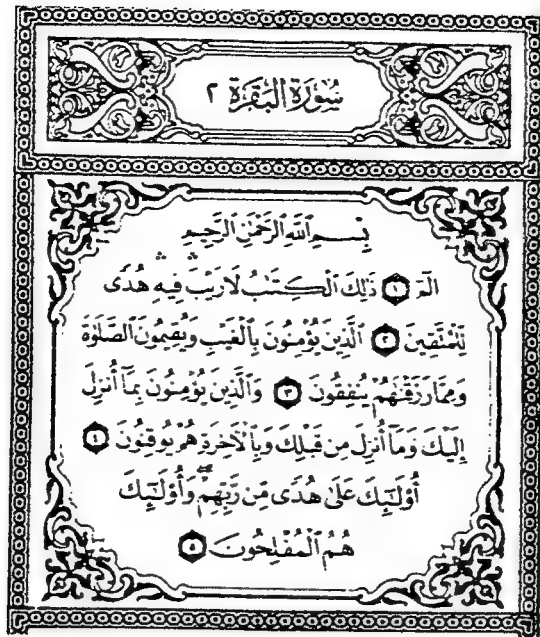 سُورَةُ الْبَقَرَةِ ٢
بِسْمِ اللَّهِ الرَّحْمَٰنِ الرَّحِيمِ
الٓمٓ ١ ذَٰلِكَ الْكِتَٰبُ لَا رَيْبَ فِيهِ هُدًى
لِّلْمُتَّقِينَ ٢ الَّذِينَ يُؤْمِنُونَ بِالْغَيْبِ وَيُقِيمُونَ الصَّلَوٰةَ
وَمِمَّا رَزَقْنَٰهُمْ يُنفِقُونَ ٣ وَالَّذِينَ يُؤْمِنُونَ بِمَآ أُنزِلَ
إِلَيْكَ وَمَآ أُنزِلَ مِن قَبْلِكَ وَبِالْأَخِرَةِ هُمْ يُوقِنُونَ ٤
أُوْلَٰٓئِكَ عَلَىٰ هُدًى مِّن رَّبِّهِمْ ۖ وَأُوْلَٰٓئِكَ
هُمُ الْمُفْلِحُونَ ٥